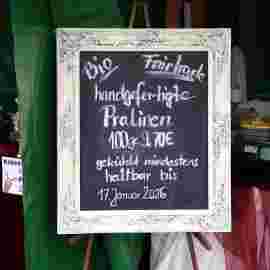 Bio Fairtrade
handgefertigte
Pralinen
100g 9,70€
gekühlt mindestens
haltbar bis
17. Januar 2026